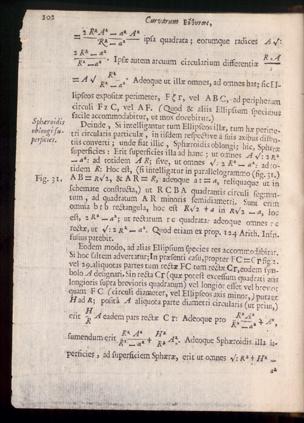 202 Curvarum Elevatæ,
= 2R²A² — a²A² / R² — a² ipsa quadrata; eorumque radices A √:
2R² — a² / R² — a². Ipsæ autem arcuum circularium differentiæ R, A
= A √ R² / R² — a². Adeoque ut illæ omnes, ad omnes has; sic El-
lipseos expositæ perimeter, F ζ r, vel ABC, ad peripheriam
circuli F z C, vel AF. (Quod & aliis Ellipsium speciebus
facile accommodabitur, ut mox docebitur.)
Sphæroidis
oblongi su-
perficies.
Deinde, Si intelligantur tum Ellipseos illæ, tum hæ perime-
tri circularis particulæ, in iisdem respective à suis axibus distan-
tiis converti; unde fiat illic, Sphæroidis oblongi; hic, Sphæræ
superficies: Erit superficies illa ad hanc; ut omnes A √: 2 R²
— a²: ad totidem AR; sive, ut omnes √: 2 R² — a²: ad to-
tidem R: Hoc est, (si intelligatur in parallelogrammo (fig. 31.)
Fig. 31.
AB = R√2, & AR = R, adeoque a1 = a, reliquaque ut in
schemate constructa,) ut RCBA quadrantis circuli segmen-
tum, ad quadratum AR minoris semidiametri. Sunt enim
omnia b1b rectangula, hoc est R√2 + a in R√2 — a, hoc
est, 2 R² — a²; ut rectarum 1c quadrata: adeoque omnes 1c
rectæ, ut √: 2 R² — a². Quod etiam ex prop. 124 Arith. Infi.
fusius patebit.
Eodem modo, ad alias Ellipsium species res accommodabitur.
vel 29. aliquotas partes tum rectæ FC tum rectæ Cr, eodem sym-
bolo A designati. Sin recta Cr (quæ potest excessum quadrati axis
longioris supra brevioris quadratum) vel longior esset vel brevior
quam FC (circuli diameter, vel Ellipseos axis minor,) putà ex
H ad R; posita A aliquota parte diametri circularis (ut prius,)
erit H / R A eadem pars rectæ Cr: Adeoque pro R² A² / R² — a² + A²,
sumendum erit R² A² / R² — a² + H² / R² A². Adeoque Sphæroidis illa su-
perficies, ad superficiem Sphæræ, erit ut omnes √: R² + H² —
a²